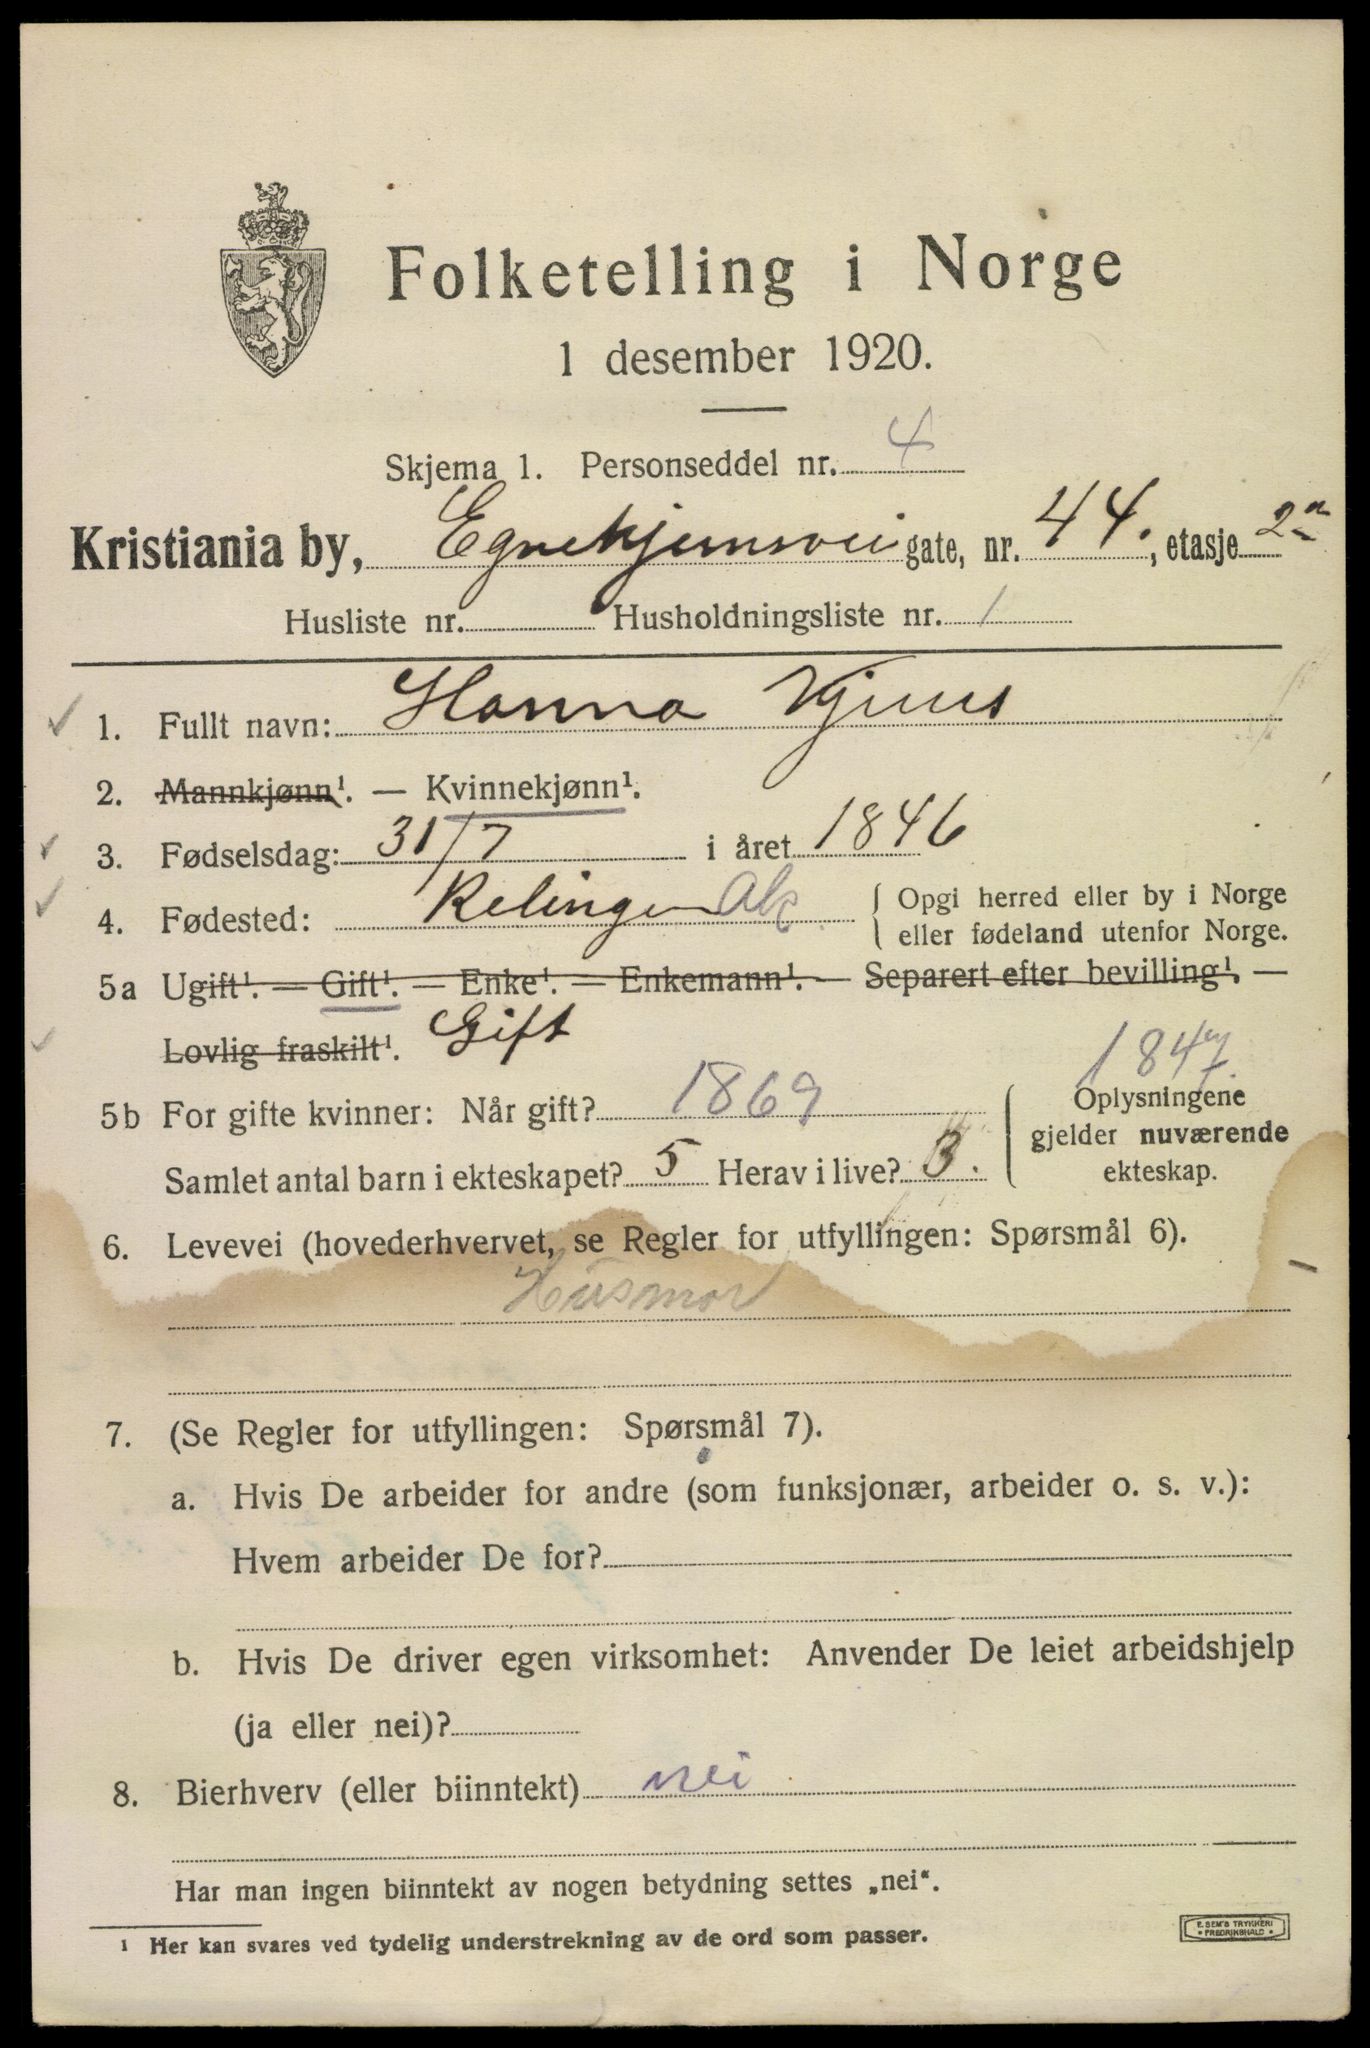 Folketelling i Norge
1 desember 1920.
Skjema 1. Personseddel nr. 4
Kristiania by, Egnehjemsvei gate, nr. 44., etasje 2
Husliste nr. Husholdningsliste nr. 1
1. Fullt navn: Hanna
2. Mannkjønn¹. — Kvinnekjønn¹.
3. Fødselsdag: 31/7 i året 1846
4. Fødested: Relingen Ak. Opgi herred eller by i Norge
eller fødeland utenfor Norge.
5a Ugift¹. — Gift¹. — Enke¹. — Enkemann¹. — Separert efter bevilling¹. —
Lovlig fraskilt¹. Gift
1847.
5b For gifte kvinner: Når gift? 1869 Oplysningene
gjelder nuværende
Samlet antal barn i ekteskapet? 5 Herav i live? 3. ekteskap.
6. Levevei (hovederhvervet, se Regler for utfyllingen: Spørsmål 6).
Husmor
7. (Se Regler for utfyllingen: Spørsmål 7).
a. Hvis De arbeider for andre (som funksjonær, arbeider o. s. v.):
Hvem arbeider De for?
b. Hvis De driver egen virksomhet: Anvender De leiet arbeidshjelp
(ja eller nei)?
8. Bierhverv (eller biinntekt) nei
Har man ingen biinntekt av nogen betydning settes „nei“.
¹ Her kan svares ved tydelig understrekning av de ord som passer.
E. SEM'S TRYKKERI
* FREDRIKSHALD *